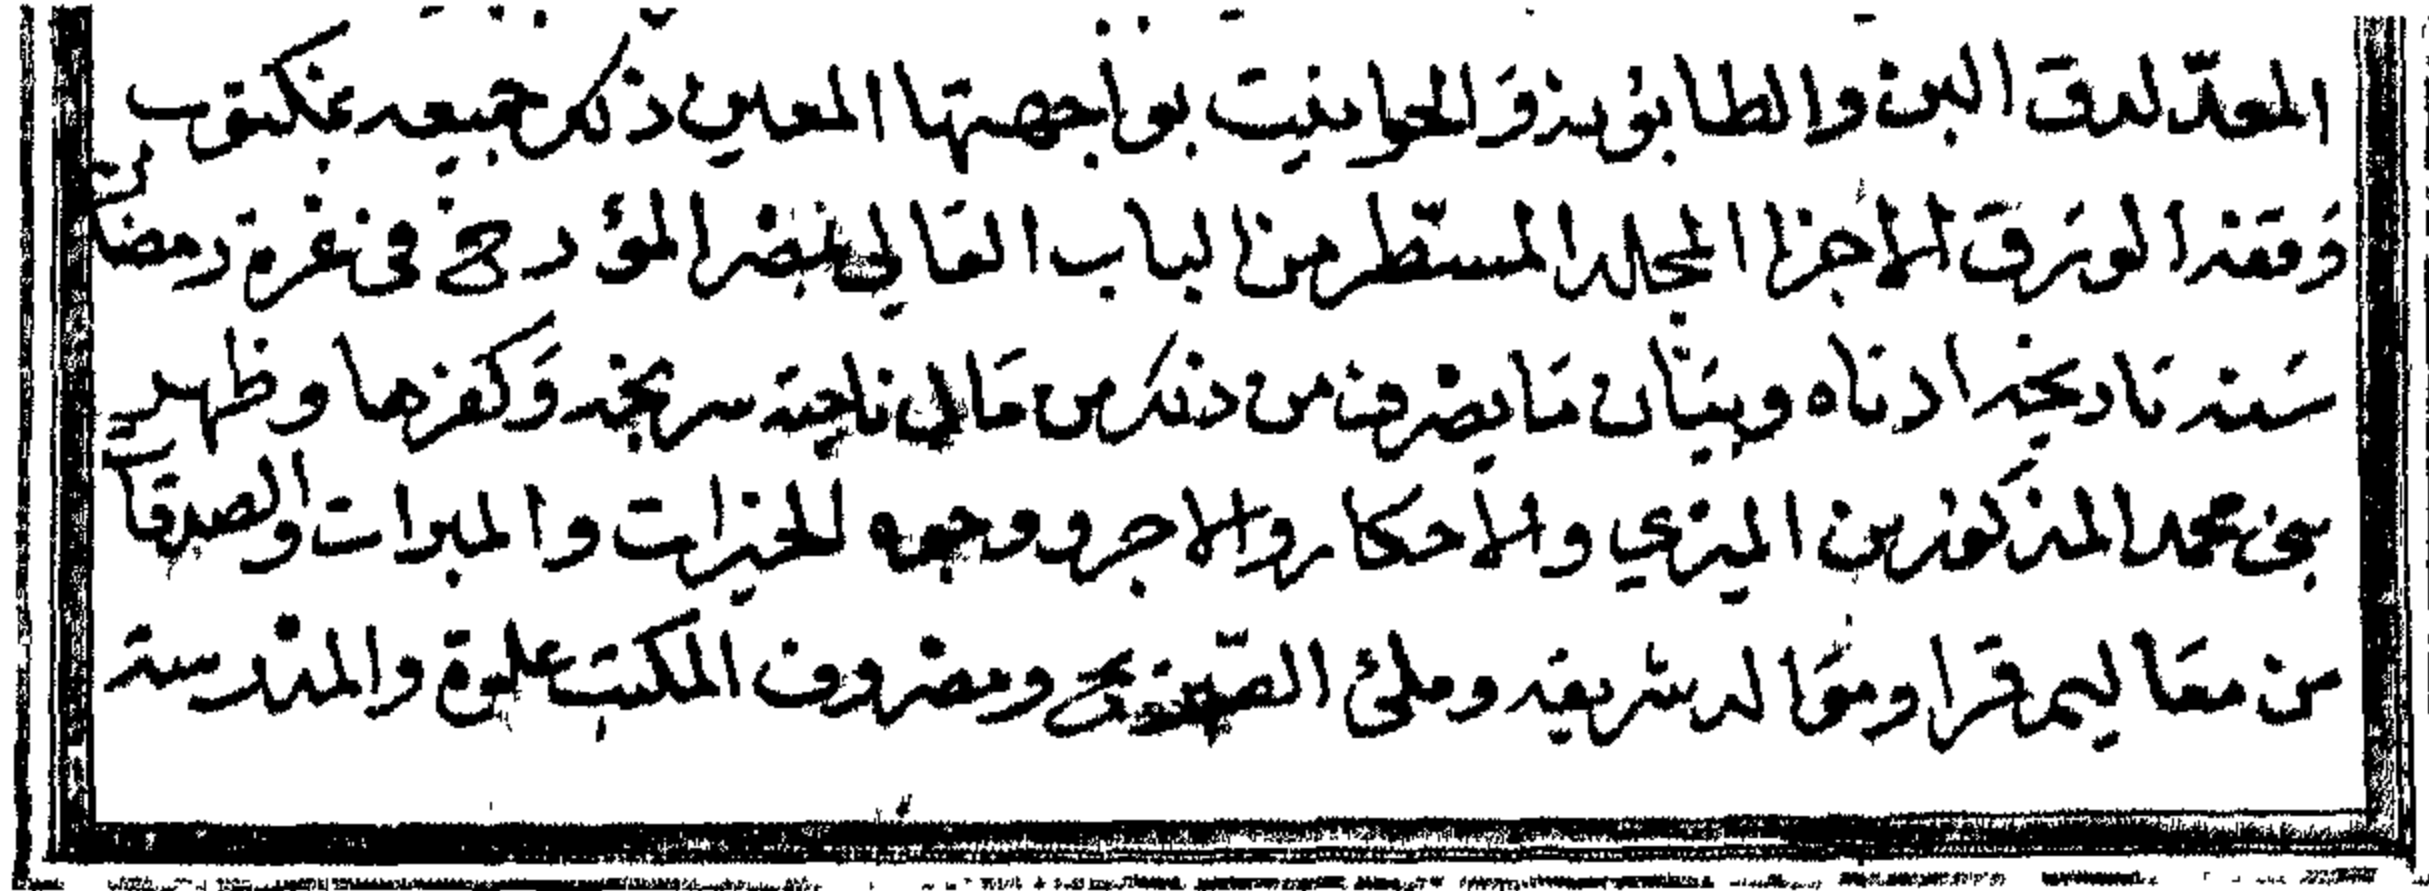 المعدّ لدق البن والطابونة والحوانيت بواجهتها المعين ذلك جميعه بمكتوب
وقفه الورق الاجزا المجلد المسطر من الباب العالي بمصر المؤرخ في غرة رمضان
سنة تاريخه ادناه وبيان ما يصرف من ذلك من مال ناحية سريخه وكفرها وظهير
بني محمد المذكورين الميري والاحكار والاجر ووجهه للخيرات والمبرات والصدقات
من معاليم قرا وموالد شريفه وملئ الصهريج ومصروف المكتب علوه والمدرسة